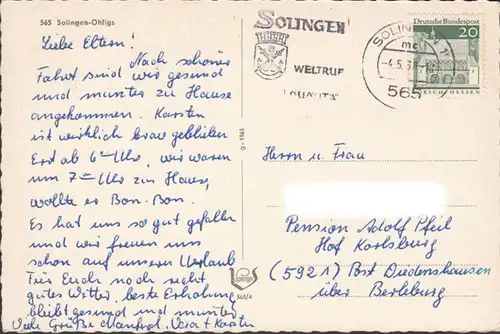 565 Solingen-Ohligs
Liebe Eltern!
Nach schöner
Fahrt sind wir gesund
und munter zu Hause
angekommen. Karsten
ist wirklich brav geblieben
Erst ab 6 Uhr, wir waren
um 7 Uhr zu Hause,
wollte er Bon-Bon.
Es hat uns so gut gefallen
und wir freuen uns
schon auf unseren Urlaub
Für Euch noch recht
gutes Wetter, beste Erholung
bleibt gesund und munter
Viele Grüße Manfred, Vera + Karsten
g - 1965
565/6
SOLINGEN
WELTRUF
SOLINGEN 1
mc
-4.5.6
565
Deutsche Bundespost
20
LORSCH/HESSEN
Herrn u. Frau
Pension Adolf Pfeil
Hof Karlsburg
(5921) Post Diedenshausen
über Berleburg